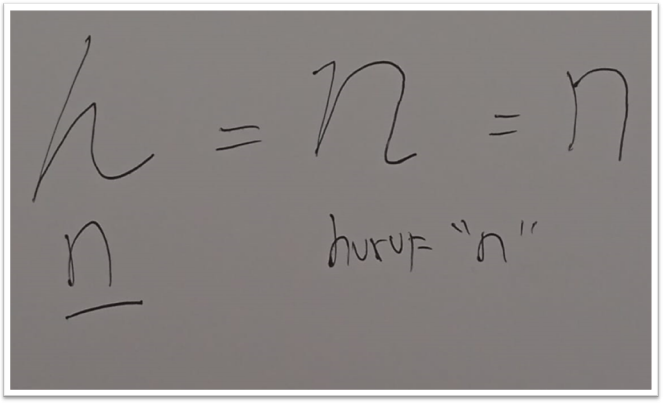 n = n = n
n huruf "n"